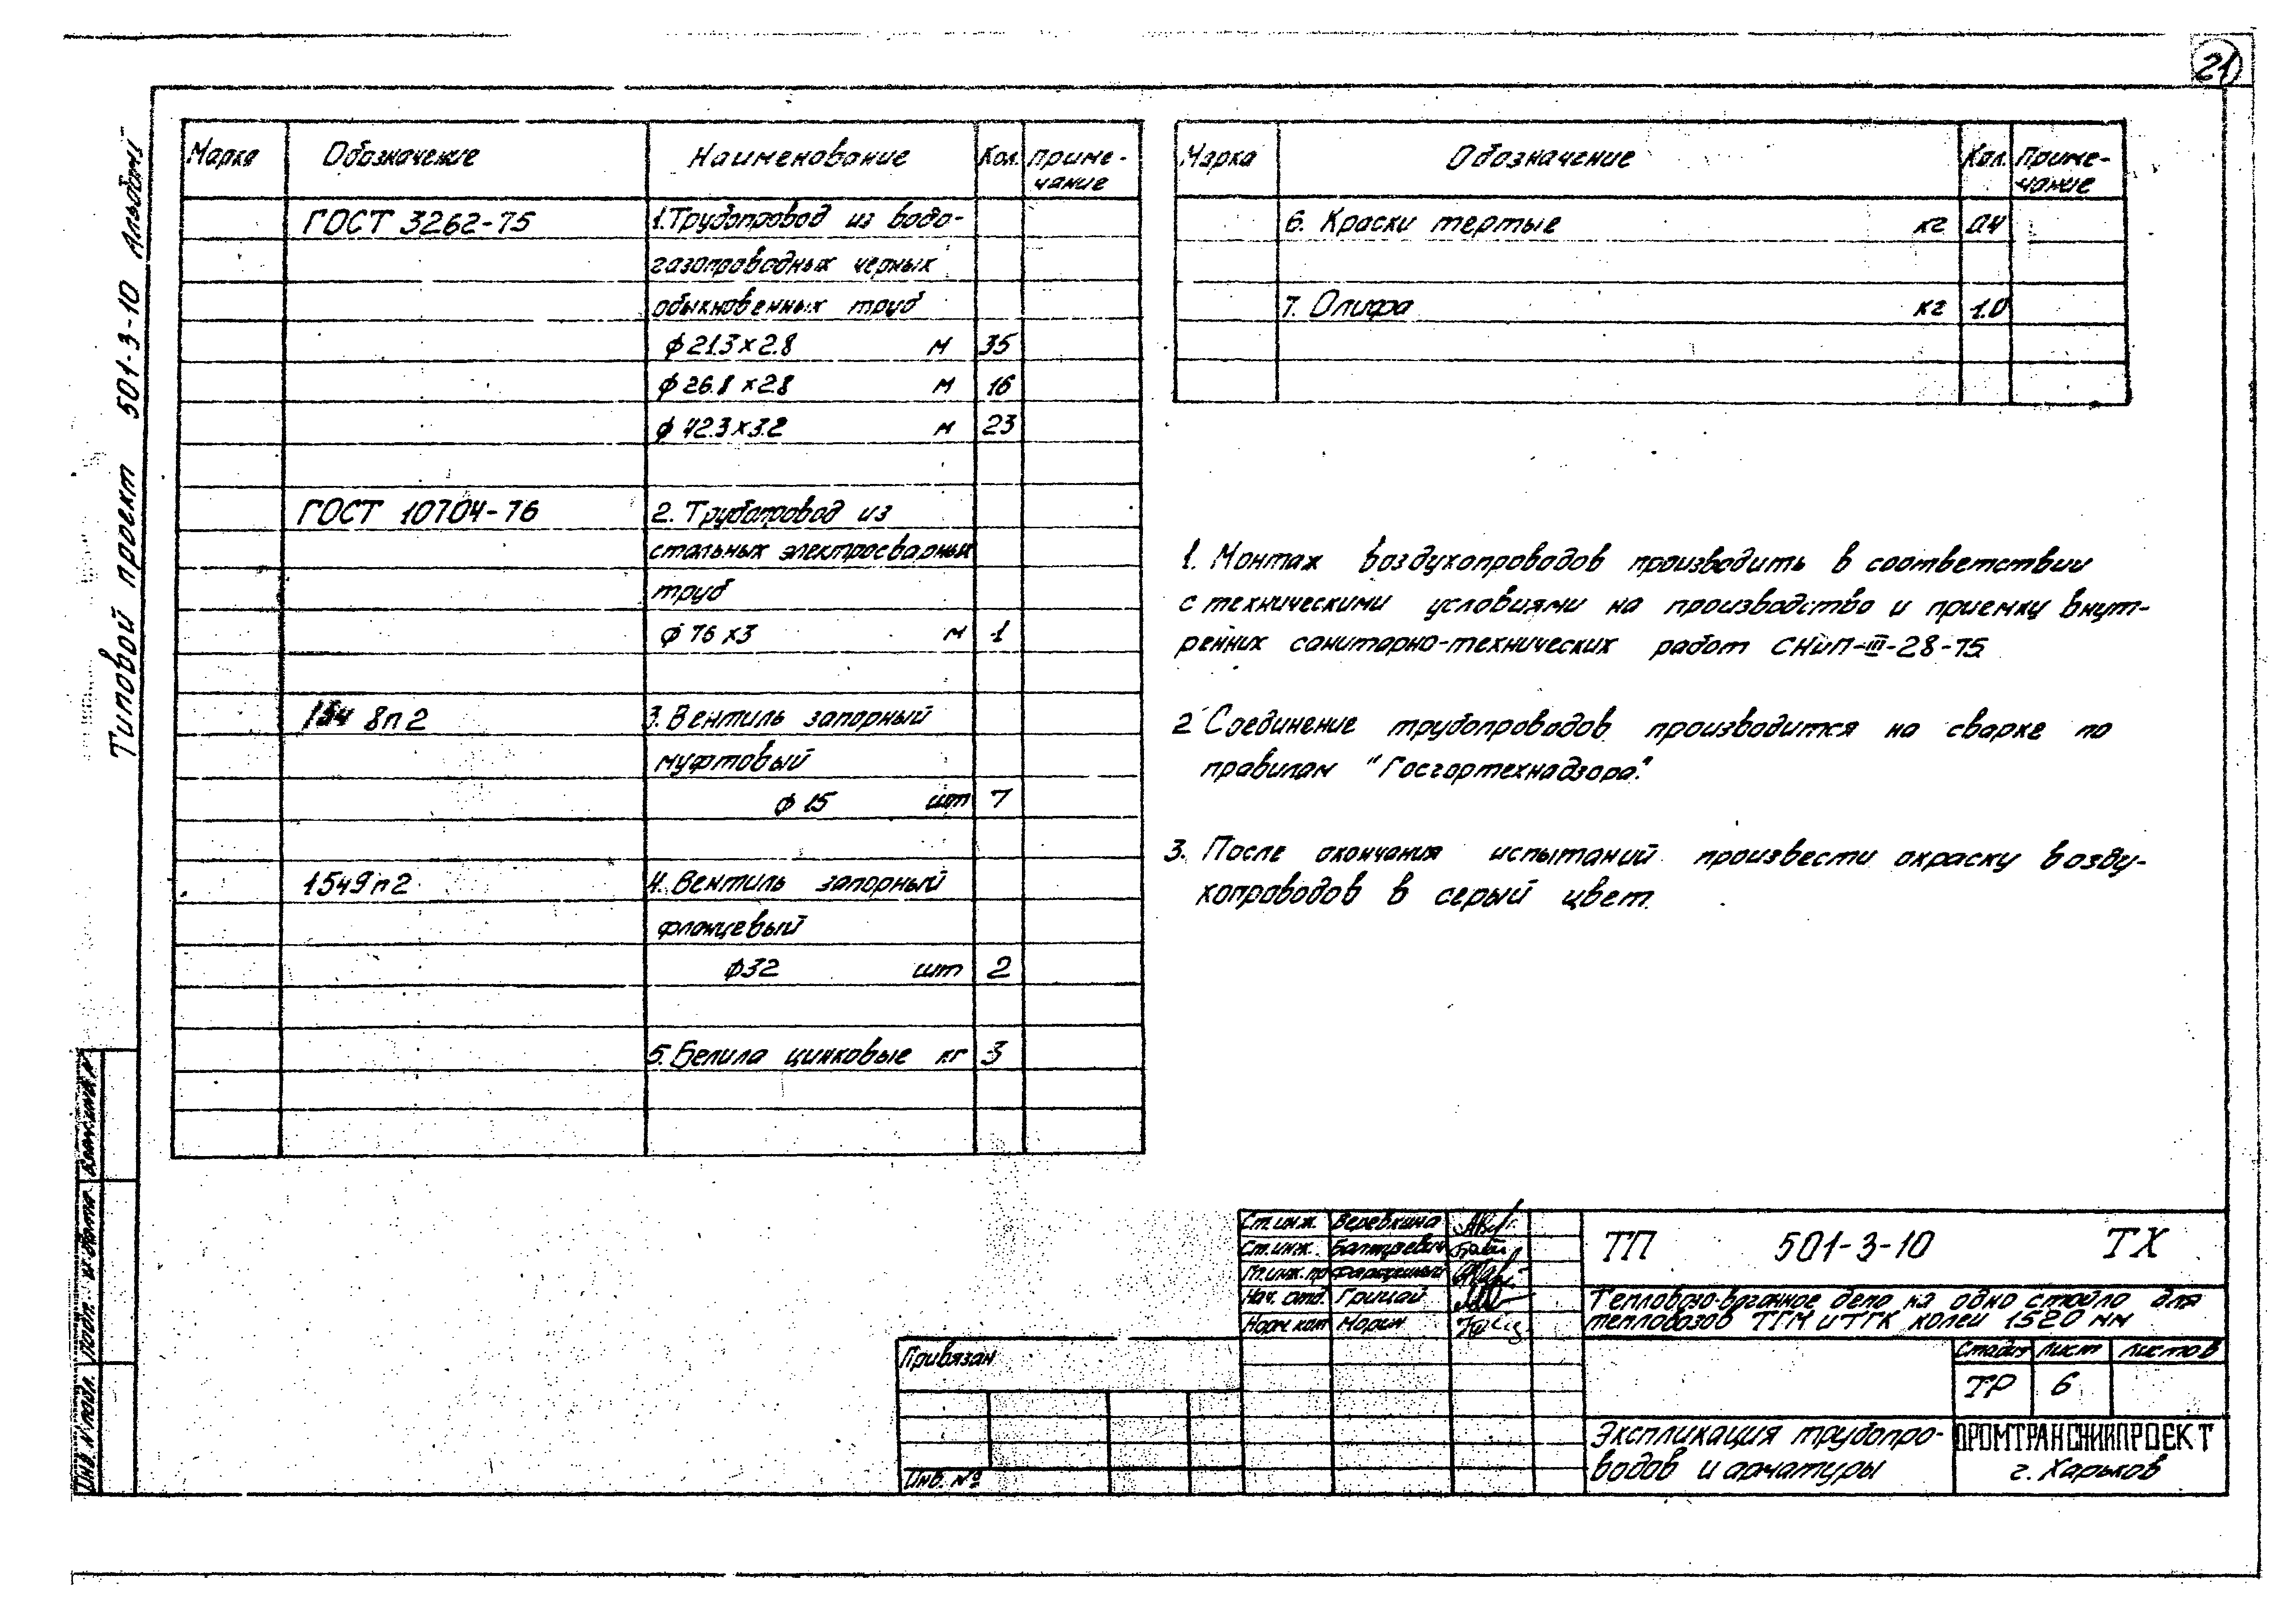 21
Типовой проект 501-3-10 Альбом I
Марка Обозначение Наименование Кол. Приме-
чание
ГОСТ 3262-75 1. Трубопровод из водо-
газопроводных черных
обыкновенных труб
ф 21.3 х 2.8 м 35
ф 26.8 х 2.8 м 16
ф 42.3 х 3.2 м 23
ГОСТ 10704-76 2. Трубопровод из
стальных электросварных
труб
ф 76 х 3 м 1
15ч 8п2 3. Вентиль запорный
муфтовый
ф 15 шт 7
15ч9п2 4. Вентиль запорный
фланцевый
ф32 шт 2
5. Белила цинковые кг 3
Марка Обозначение Кол. Приме-
чание
6. Краски тертые кг 0.4
7. Олифа кг 1.0
1. Монтаж воздухопроводов производить в соответствии
с техническими условиями на производство и приемку внут-
ренних санитарно-технических работ СНиП-III-28-75
2 Соединение трубопроводов производится на сварке по
правилам "Госгортехнадзора".
3. После окончания испытаний произвести окраску возду-
хопроводов в серый цвет.
Ст. инж. Веревкина
Ст. инж.
Гл. инж. пр
Нач. отд. Грицай
Норм. кон Морин
ТП 501-3-10 ТХ
Тепловозо-вагонное депо на одно стойло для
тепловозов ТГМ и ТГК колеи 1520 мм
Стадия Лист Листов
ТР 6
Экспликация трубопро-
водов и арматуры
ПРОМТРАНСНИИПРОЕКТ
г. Харьков
Привязан
Инв. №
Взам. инв. №
Подп. и дата
Инв. № подл.